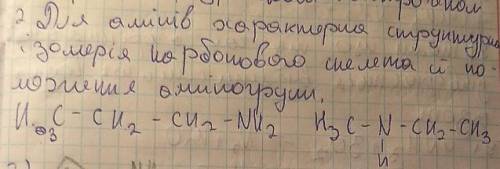 2 Для амінів характерна структурна
ізомерія карбонового скелета й по-
ложення аміногрупи.
H₃C - CH₂ - CH₂ - NH₂ H₃C - N - CH₂ - CH₃
H